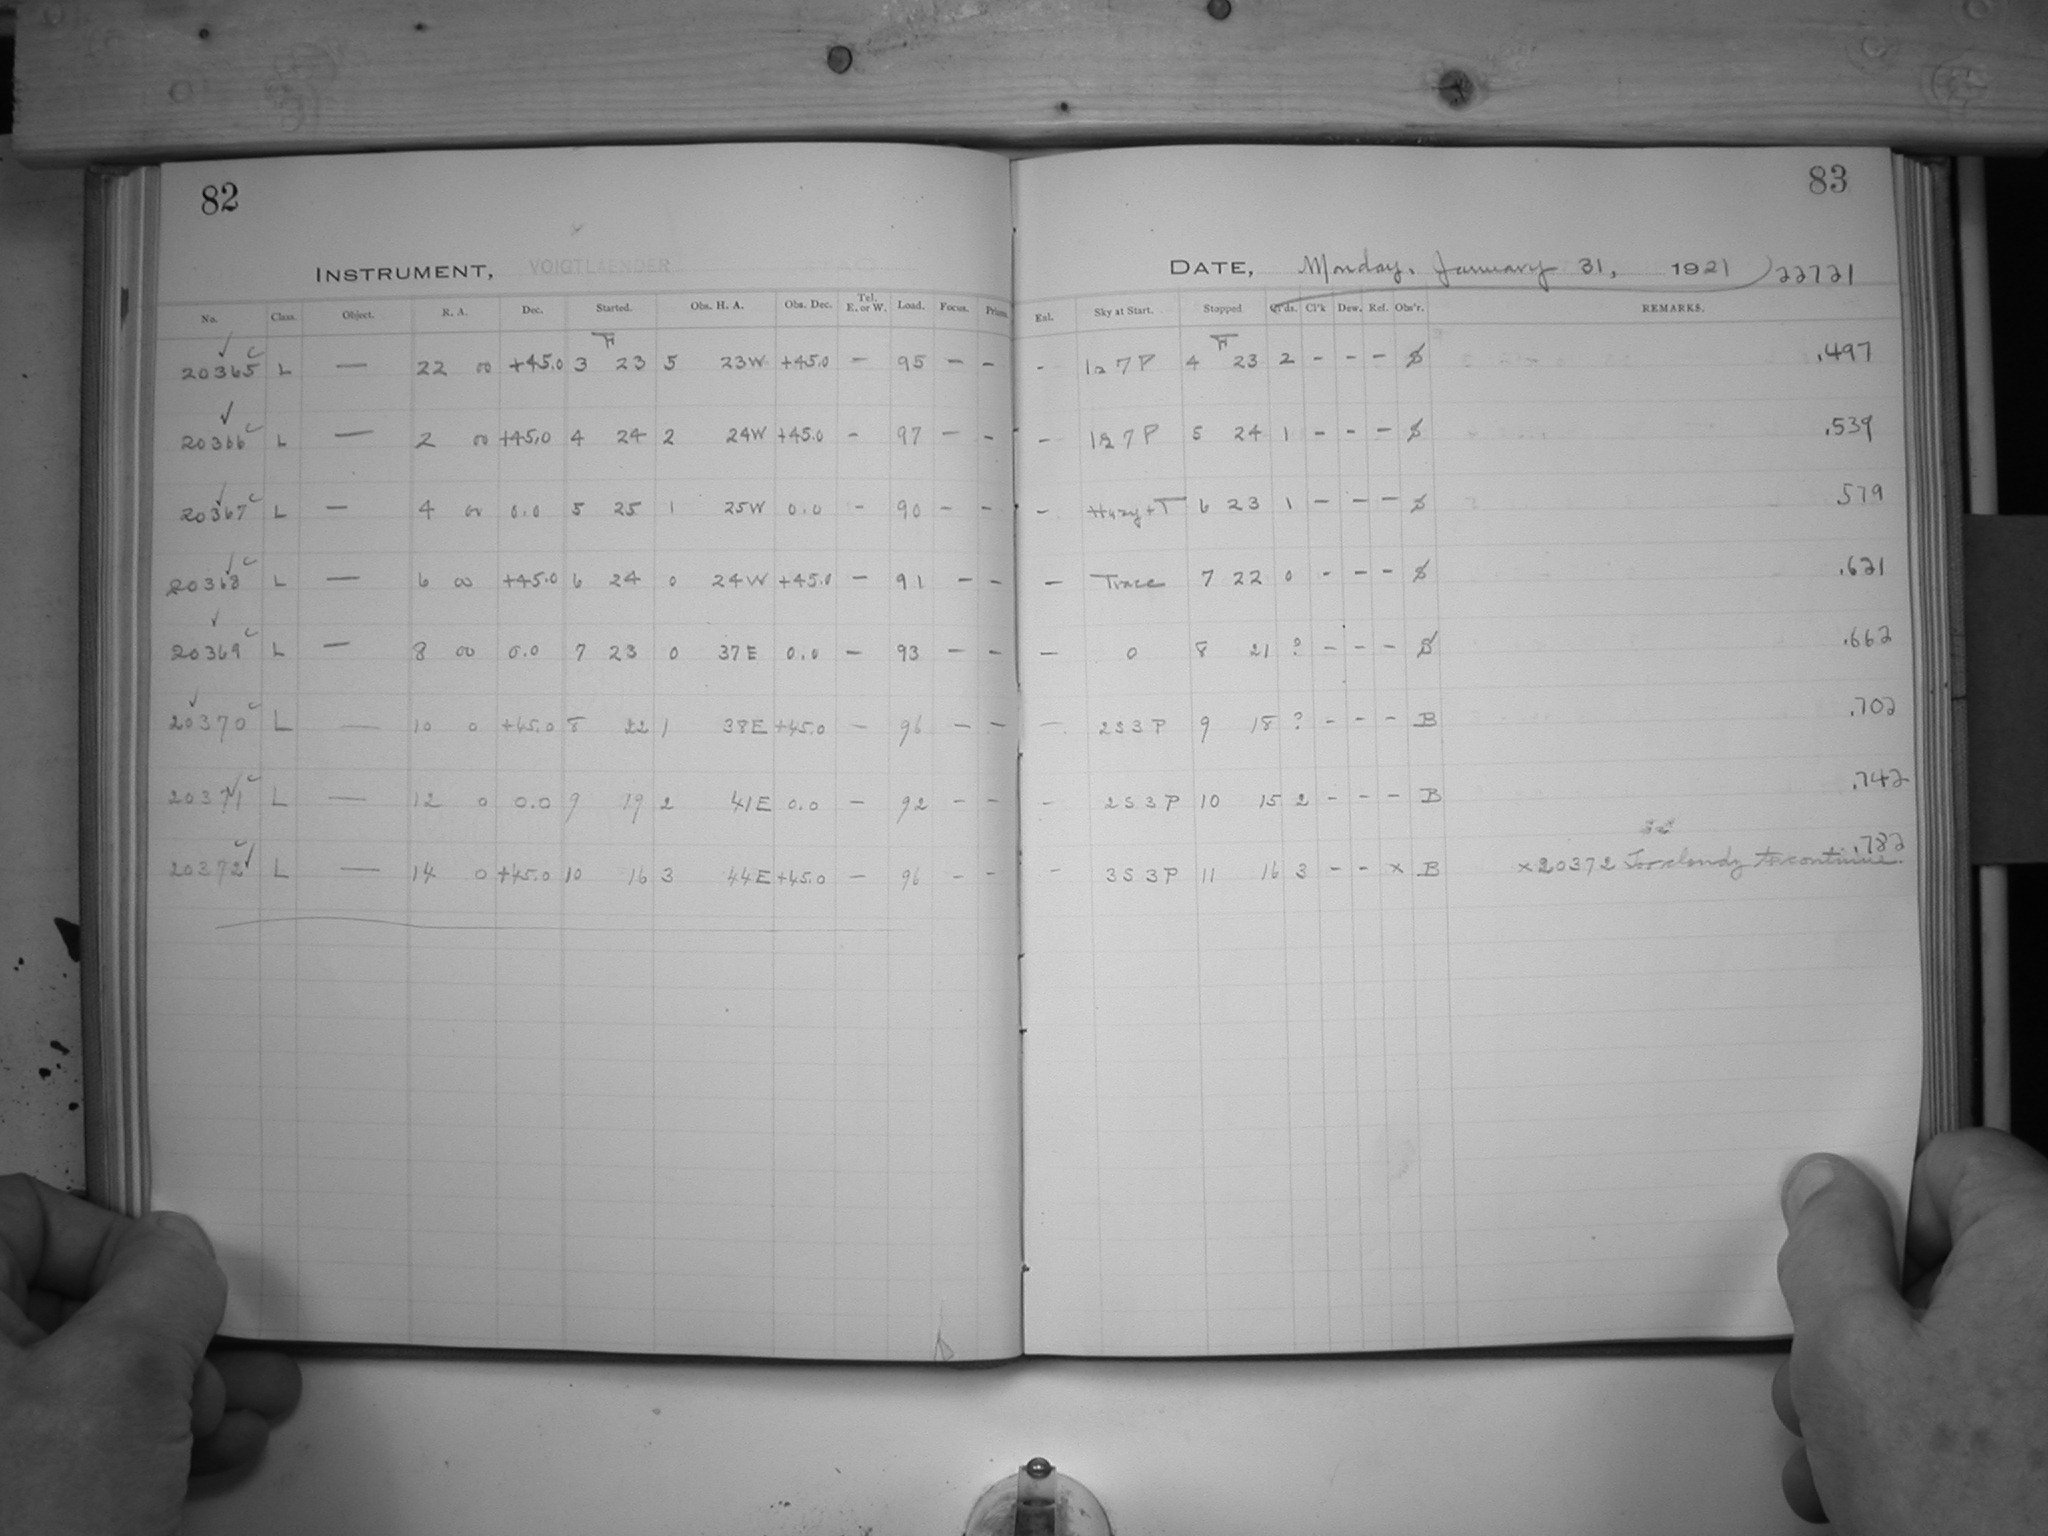 82
INSTRUMENT, VOIGTLAENDER
No. Class. Object. R. A. Dec. Started. Obs. H. A. Obs. Dec. Tel. E. or W. Load. Focus. Prism.
20365 L — 22 00 +45.0 3 23 5 23W +45.0 — 95 — —
20366 L — 2 00 +45.0 4 24 2 24W +45.0 — 97 — —
20367 L — 4 00 0.0 5 25 1 25W 0.0 — 90 — —
20368 L — 6 00 +45.0 6 24 0 24W +45.0 — 91 — —
20369 L — 8 00 0.0 7 23 0 37E 0.0 — 93 — —
20370 L — 10 0 +45.0 8 22 1 38E +45.0 — 96 — —
20371 L — 12 0 0.0 9 19 2 41E 0.0 — 92 — —
20372 L — 14 0 +45.0 10 16 3 44E +45.0 — 96 — —
83
DATE, Monday, January 31, 1921 22721
Exl. Sky at Start. Stopped Qr'ds. Cl'k Dew. Ref. Obs'r. REMARKS.
- 7 P 4 23 2 - - - .497
- 7 P 5 24 1 - - - .539
- Hazy + T 6 23 1 - - - .579
— Trace 7 22 0 - - - .621
— 0 8 21 ? - - - .662
— 2S3P 9 18 ? - - - B .702
- 2S3P 10 15 2 - - - B .742
- 3S3P 11 16 3 - - x B .782
x 20372 Too cloudy to continue.